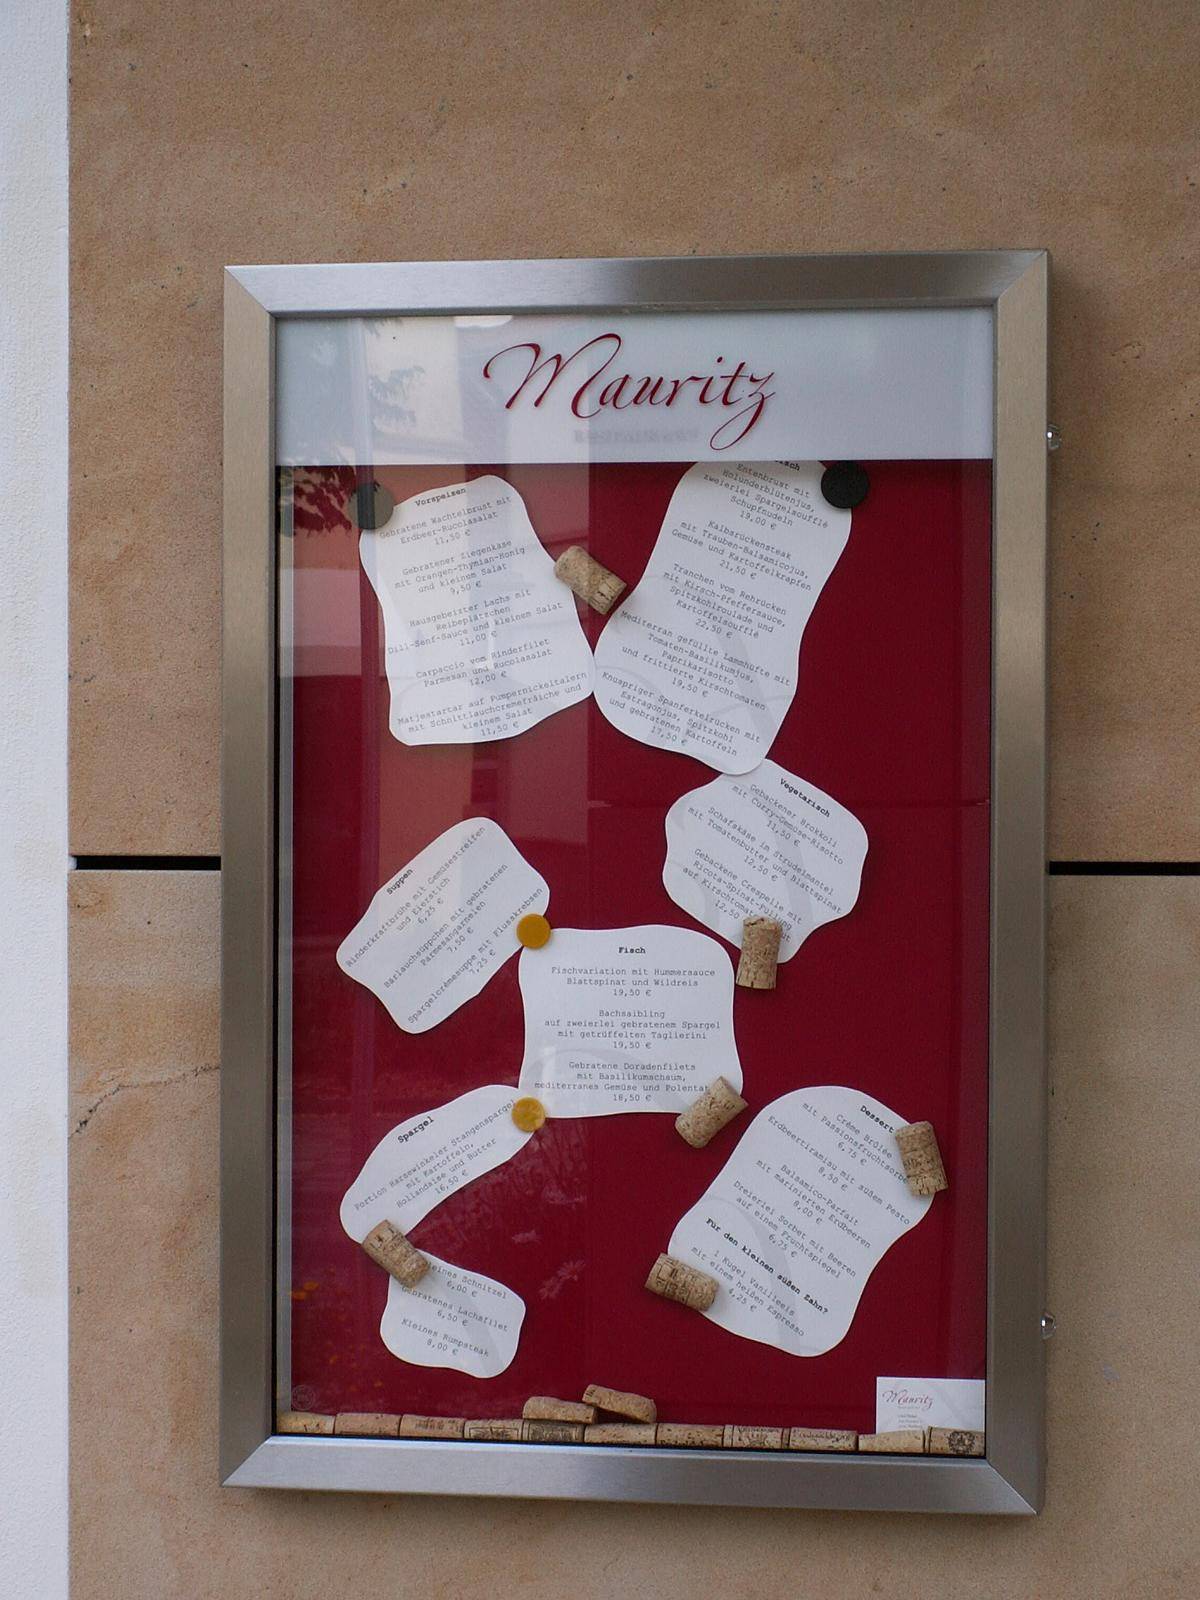 Mauritz
Vorspeisen
Gebratene Wachtelbrust mit
Erdbeer-Rucolasalat
11,50 €
Gebratener Ziegenkäse
mit Orangen-Thymian-Honig
und kleinem Salat
9,50 €
Hausgebeizter Lachs mit
Reibeplätzchen
Dill-Senf-Sauce und kleinem Salat
11,00 €
Carpaccio vom Rinderfilet
Parmesan und Rucolasalat
12,00 €
Matjestartar auf Pumpernickeltalern
mit Schnittlauchcremefraîche und
kleinem Salat
11,50 €
Entenbrust mit
Holunderblütenjus,
zweierlei Spargelsoufflé
Schupfnudeln
19,00 €
Kalbsrückensteak
mit Trauben-Balsamicojus,
Gemüse und Kartoffelkrapfen
21,50 €
Tranchen vom Rehrücken
mit Kirsch-Pfeffersauce,
Spitzkohlroulade und
Kartoffelsoufflé
22,50 €
Mediterran gefüllte Lammhüfte mit
Tomaten-Basilikumjus,
Paprikarisotto
und frittierte Kirschtomaten
19,50 €
Knuspriger Spanferkelrücken mit
Estragonjus, Spitzkohl
und gebratenen Kartoffeln
17,50 €
Vegetarisch
Gebackener Brokkoli
mit Curry-Gemüse-Risotto
11,50 €
Schafskäse im Strudelmantel
mit Tomatenbutter und Blattspinat
12,50 €
Gebackene Crespelle mit
Ricota-Spinat-Füllung
auf
12,50
Suppen
Rinderkraftbrühe mit Gemüsestreifen
und Eierstich
6,25 €
Bärlauchsüppchen mit gebratenen
Parmesangarnelen
7,50 €
Spargelcrèmesuppe mit Flusskrebsen
7,25 €
Fisch
Fischvariation mit Hummersauce
Blattspinat und Wildreis
19,50 €
Bachsaibling
auf zweierlei gebratenem Spargel
mit getrüffelten Taglierini
19,50 €
Gebratene Doradenfilets
mit Basilikumschaum,
mediterranes Gemüse und Polenta
18,50 €
Spargel
Portion Harsewinkeler Stangenspargel
mit Kartoffeln,
Hollandaise und Butter
16,50 €
Schnitzel
6,00 €
Gebratenes Lachsfilet
6,50 €
Kleines Rumpsteak
8,00 €
Dessert
Crème Brûlée
mit Passionsfruchtsorbe
6,75 €
Erdbeertiramisu mit süßem Pesto
8,50 €
Balsamico-Parfait
mit marinierten Erdbeeren
8,00 €
Dreierlei Sorbet mit Beeren
auf einem Fruchtspiegel
6,75 €
Für den kleinen süßen Zahn?
1 Kugel Vanilleeis
mit einem heißen Espresso
4,25 €
Mauritz